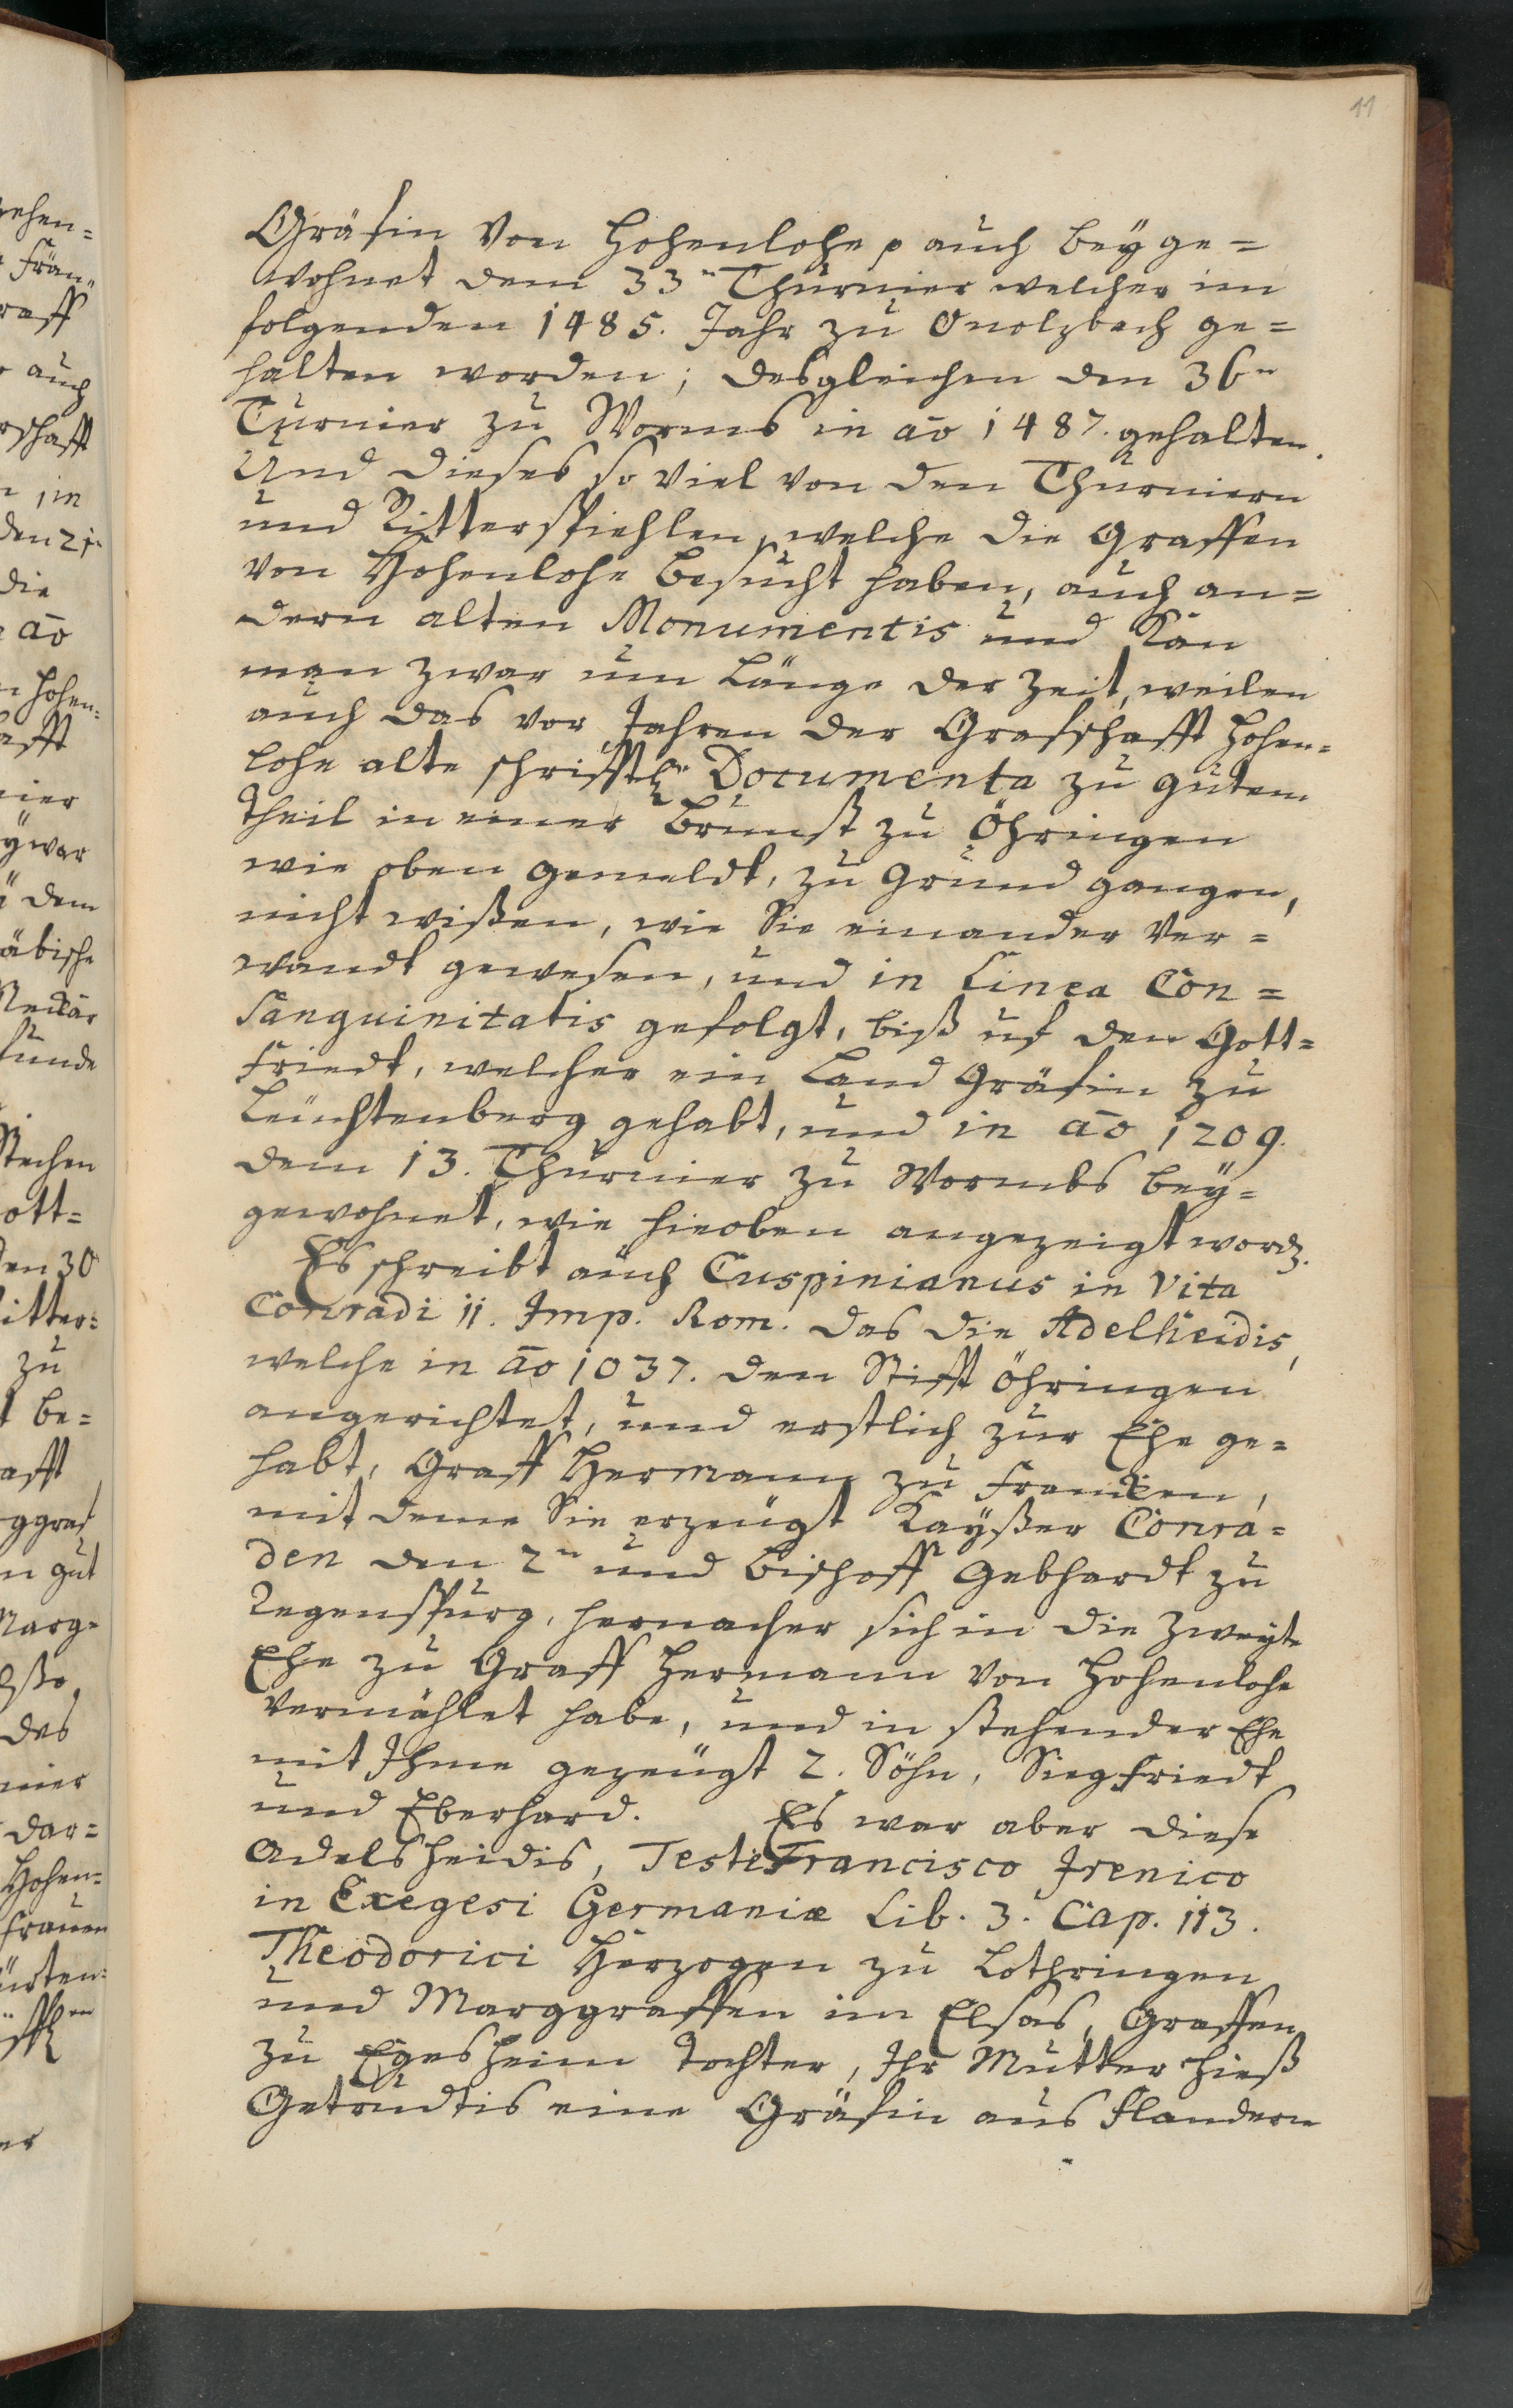 11
Gräfin von Hohenlohe p auch beyge=
wohnet dem 33n Thurnier welcher im
folgenden 1485. Jahr zu Onolzbach ge=
halten worden; desgleichen den 36n
Turnier zu Worms in ao 1487. gehalten.
Und dieses so viel von den Thurniern
und Ritterspiehlen, welche die Graffen
von Hohenlohe besucht haben, auch an=
dern alten Monumentis und kan
man zwar um Länge der Zeit, weilen
auch das vor Jahren der Grafschafft Hohen=
lohe alte schrifftl. Documenta zu gutem
Theil in einer Brunst zu Öhringen
wie oben gemeldt, zu Grund gangen,
nicht wißen, wie Sie einander ver=
wandt gewesen, und in Linea Con=
sanguinitatis gefolgt, biß uf den Gott=
friedt, welcher ein Land Gräfin zu
Leuchtenberg gehabt, und in ao 1209.
dem 13. Thurnier zu Wormbs bey=
gewohnet, wie hieoben angezeigt word.
Es schreibt auch Cuspinianus in Vita
Conradi II. Imp. Rom. das die Adelheidis,
welche in ao 1037. den Stifft Öhringen
angerichtet, und erstlich zur Ehe ge=
habt, Graff Hermann zu Francken,
mit deme Sie erzeugt Kayßer Conra=
den den 2n und Bischoff Gebhardt zu
Regenspurg, hernacher sich in die Zweyte
Ehe zu Graff Hermann von Hohenlohe
vermählet habe, und in stehender Ehe
mit Ihme gezeugt 2. Söhn, Siegfriedt
und Eberhard. Es war aber diese
Adelsheidis, Teste Francisco Irenico
in Exegesi Germaniæ Lib. 3. Cap. 113.
Theodorici Herzogen zu Lothringen
und Marggraffen im Elsas, Graffen
zu Egesheim Tochter, Ihr Mutter hieß
Getrudtis eine Gräfin aus Flandern